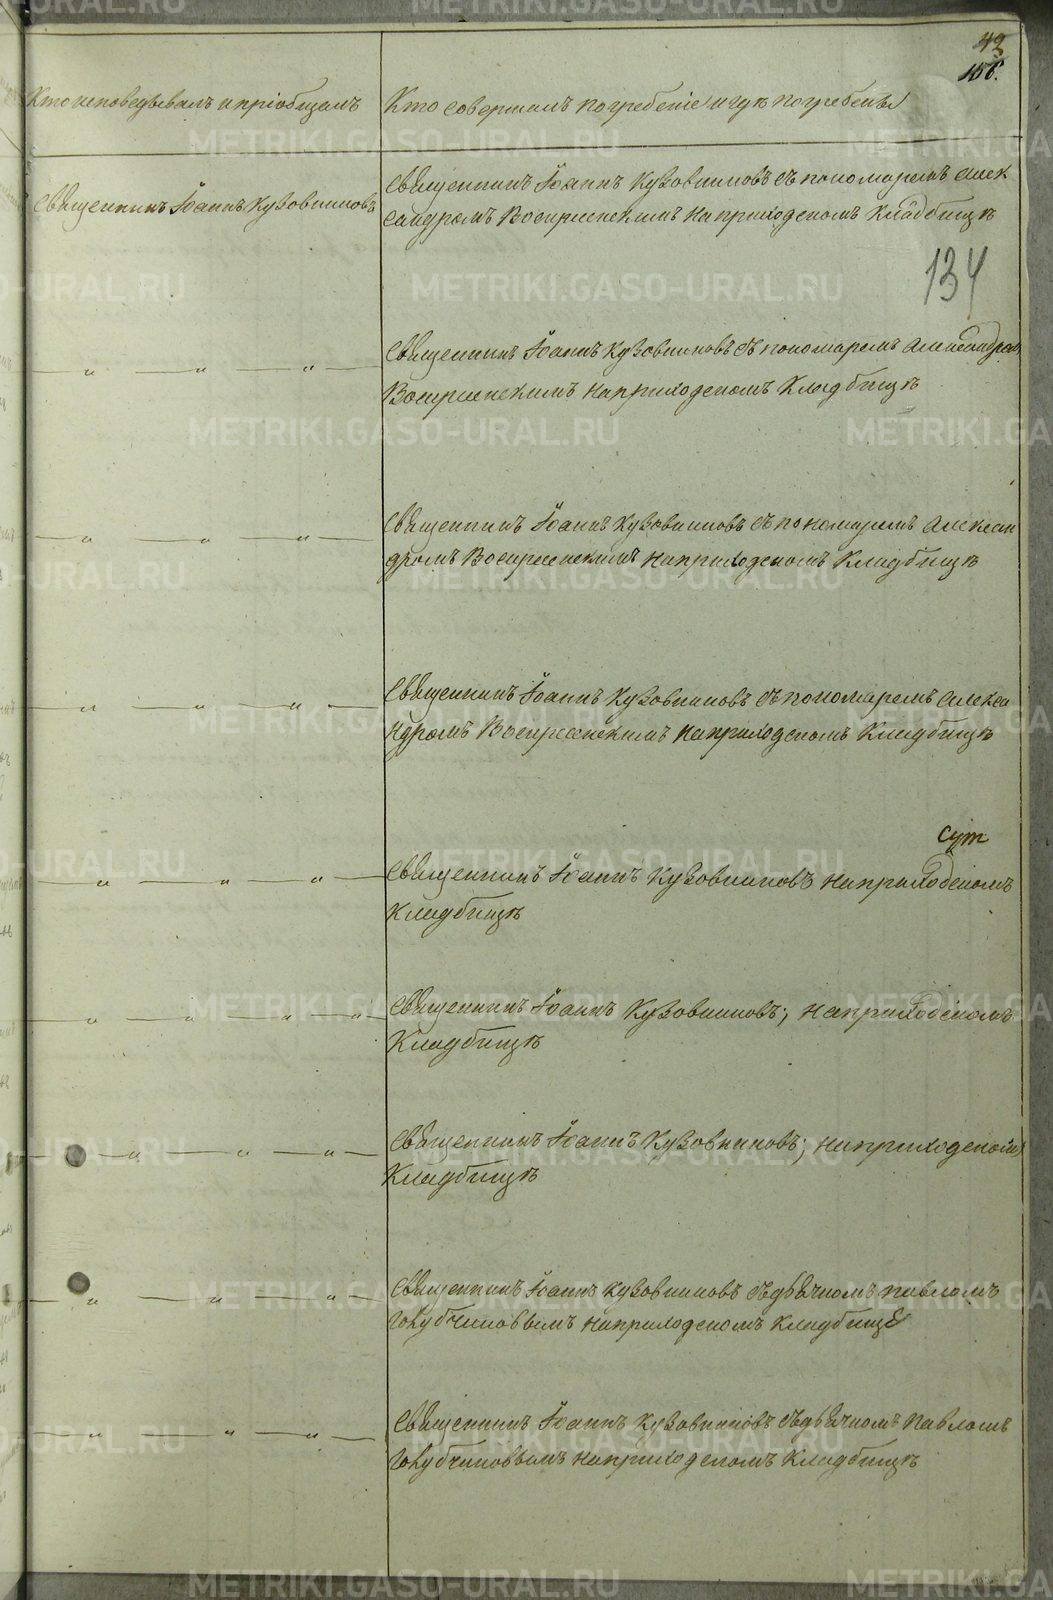 42
156.
Кто исповѣдывалъ и пріобщалъ
Кто совершалъ погребеніе и гдѣ погребены
Священникъ Іоаннъ Кузовниковъ
Священникъ Іоаннъ Кузовниковъ съ пономаремъ Алек
сандромъ Воскресенскимъ на приходскомъ кладбищѣ
134
— „ — „ — „ —
Священникъ Іоаннъ Кузовниковъ съ пономаремъ Александром
Воскресенскимъ на приходскомъ кладбищѣ
— „ — „ — „ —
Священникъ Іоаннъ Кузовниковъ съ пономаремъ Алексан
дромъ Воскресенскимъ на приходскомъ кладбищѣ
— „ — „ — „ —
Священникъ Іоаннъ Кузовниковъ съ пономаремъ Алекса
ндромъ Воскресенскимъ на приходскомъ кладбищѣ
— „ — „ — „ —
Священникъ Іоаннъ Кузовниковъ на приходскомъ
кладбищѣ
— „ — „ — „ — „
Священникъ Іоаннъ Кузовниковъ; на приходскомъ
кладбищѣ
— „ — „ — „ —
Священникъ Іоаннъ Кузовниковъ; на приходском
кладбищѣ
— „ — „ — „ —
Священникъ Іоаннъ Кузовниковъ съ дьячкомъ Павломъ
Голубчиковымъ на приходскомъ кладбище
— „ — „ — „ —
Священникъ Іоаннъ Кузовниковъ съ дьячкомъ Павломъ
Голубчиковымъ на приходскомъ кладбищѣ
METRIKI.GASO-URAL.RU